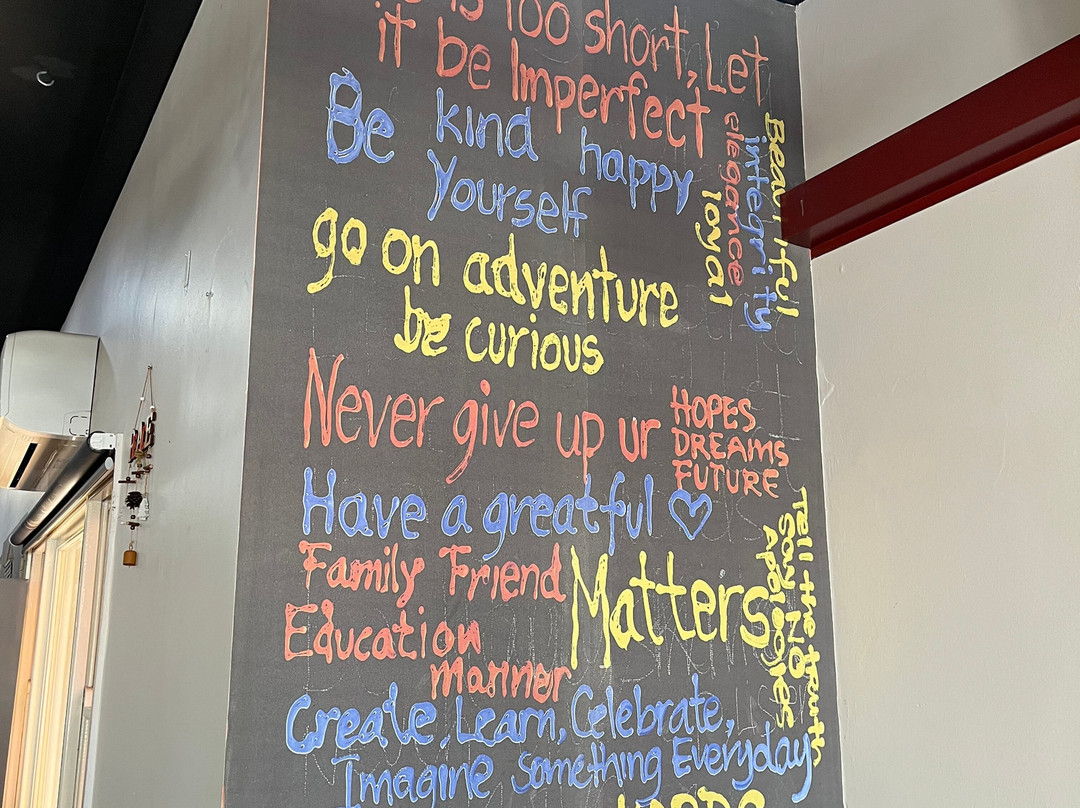 is too short, Let
it be Imperfect
Be kind happy
Yourself
Beautiful
integrity
elegance
loyal
go on adventure
be curious
Never give up ur
HOPES
DREAMS
FUTURE
Have a greatful
Family Friend
Education
manner
Matters
Tell the truth
Say NO
Apologies
Create, Learn, Celebrate,
Imagine something Everyday